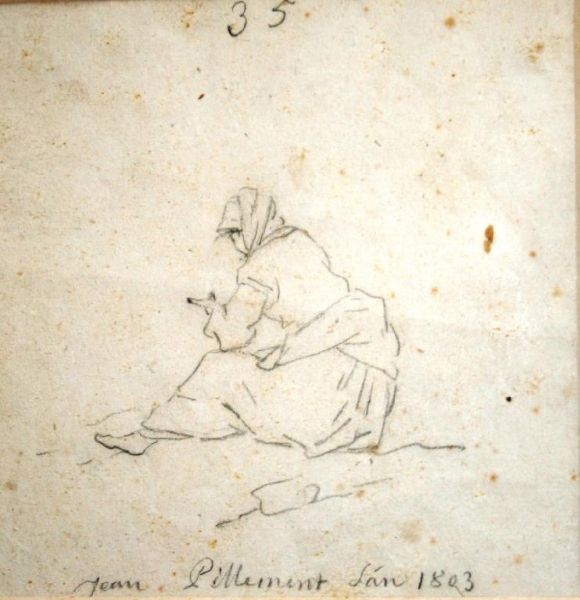 35
Jean Pillement L'án 1803